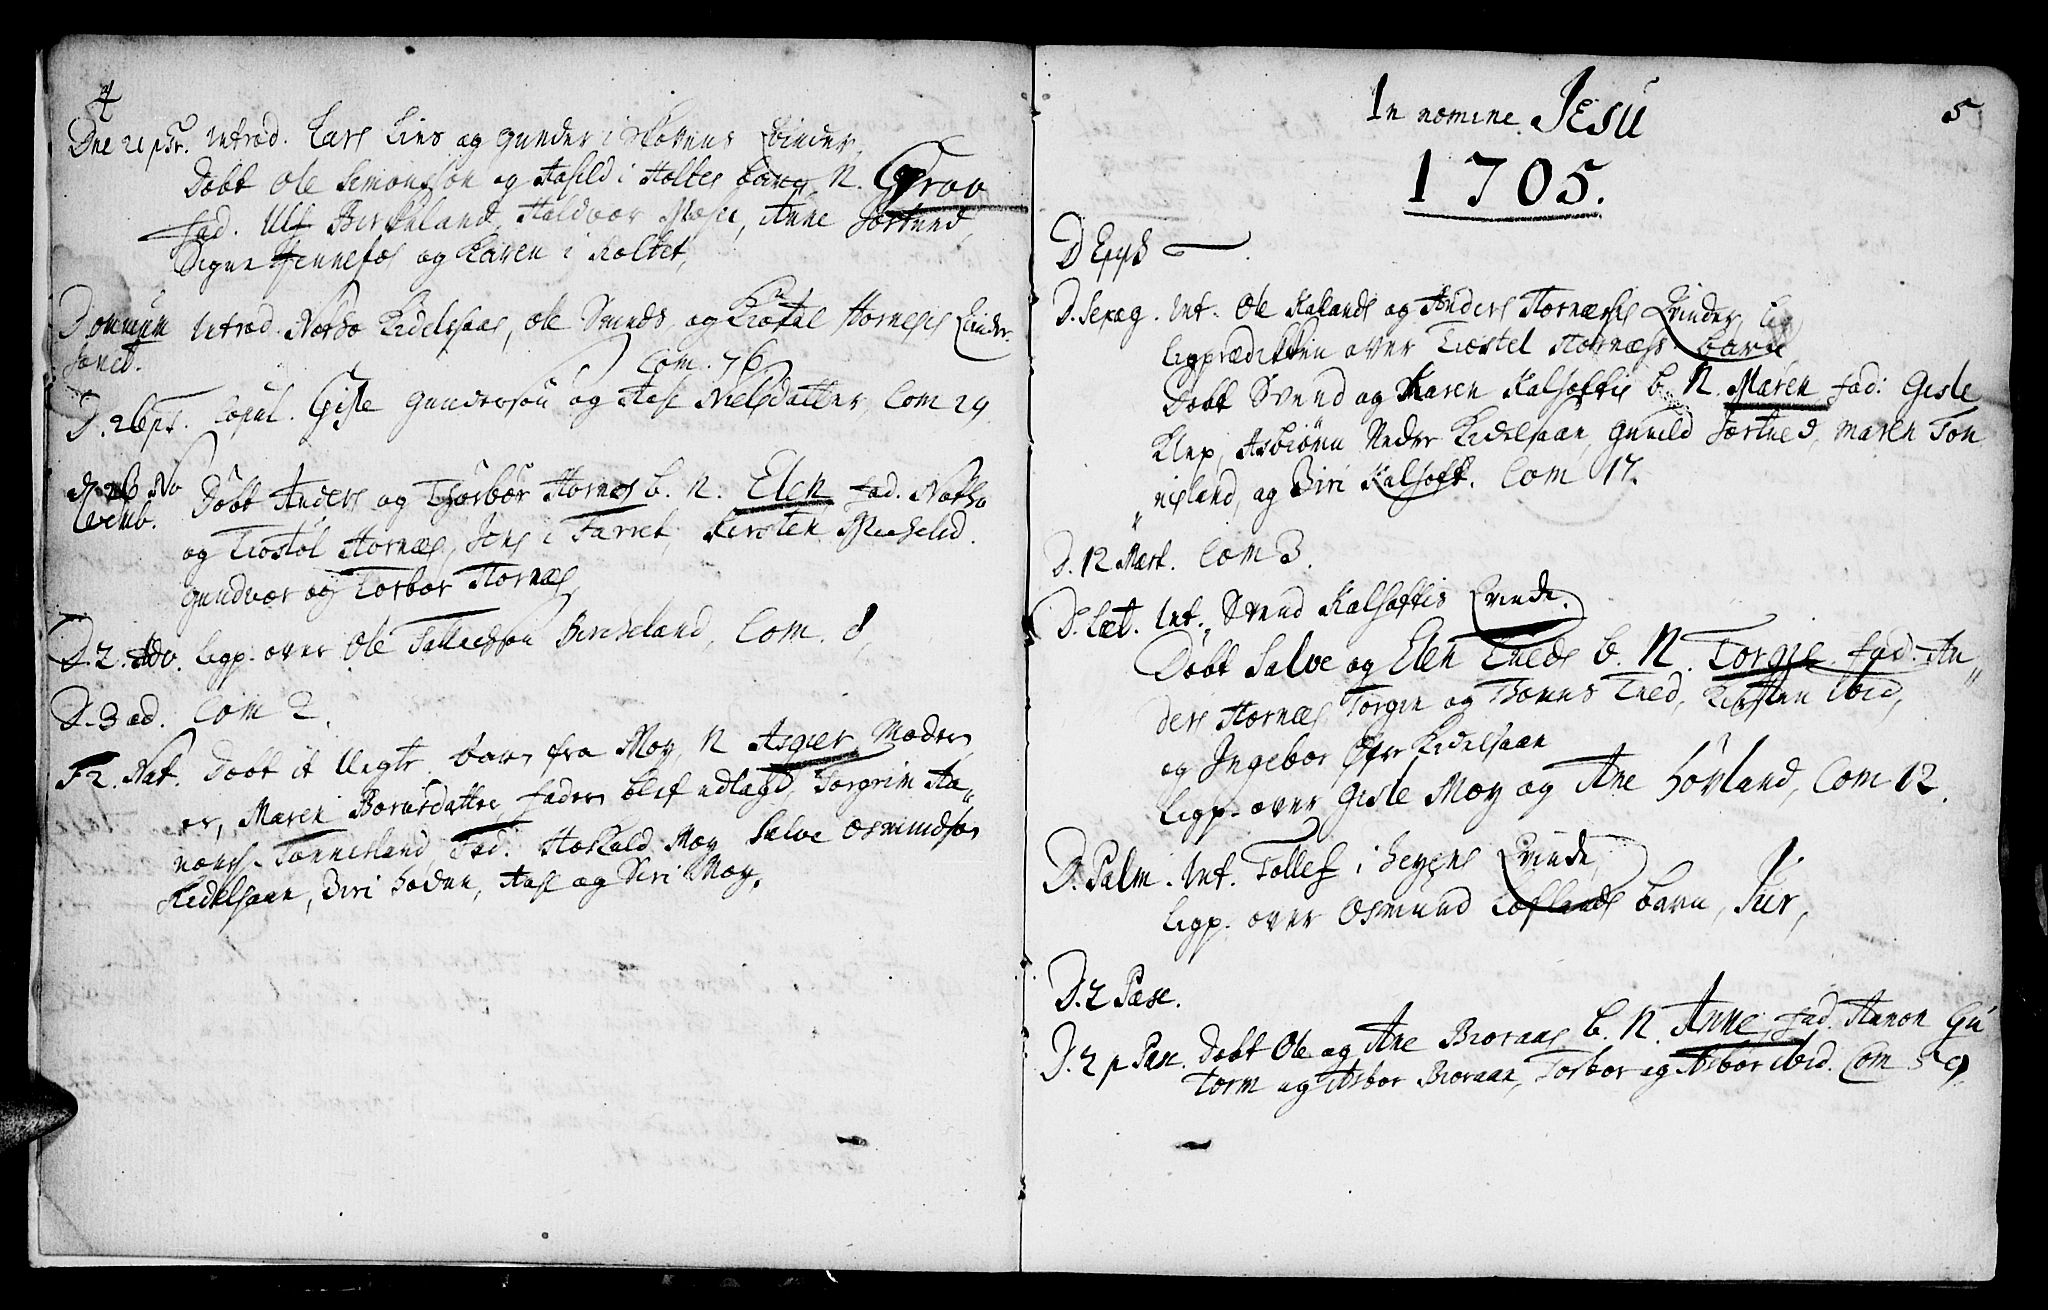 4
Dne 21 p Tr. Introd. Lars Lins og Gunder i Skovens Qvinder,
Døbt Ole Simonssøn og Asild i Holtes barn, N. Grov
Fad. Ulf Berkeland, Haldvor Mæsel, Anne Førtned,
Signe Hennefos og Karen i Koltet,
Domnium Introd. Kidelsaas, Ole Svends og Hornesis Qvinder.
Sanct. Com. 76
D. 26 p t. Copul. Gisle Gundersøn og Aase Nielsdatter Com 29.
D. 26 No Døbt Anders og Thorbor Hornes b. N. Elen Fad. Notto
vemb. og Tiostol Hornæs, Jens i Tarret, Kersten Mushelid.
Gundvor og Torbor Hornæs,
D. 2. Adv. ligp. over Ole Tallecssøn Birkeland, Com. 8,
D. 3 ad. Com 2.
F 2. Nat. Døbt it Uegte barn fra Moy, N Asgier, Moder
er, Maren Boruisdatter, Fader blef udlagd, Torgrim Aa„
nons. Tønnesland, Fad. Haskald Moy Salve Osmundsøn
Kidelsaan, Biri Hoden, Aase og Siri Moy.
In nomine JESU 5
1705.
D Epph
D. Sexag. Int. Ole Kalands og Anders Hornæses Qvinder,
ligprædikken over Tiostel Hornæss barn,
Døbt Svend og Karen Kalsoftis b. N. Maren Fad: Gisle
Klep, Asbiørn Neder Kidelsaan, Gunild Førtned, Maren Ton
„nisland, og Biri Kalsoft. Com 17.
D. 12 Mart. Com 3.
D. Læt. Int. Svend Kalsoftis Qvinde.
Døbt Salve og Elen Tveds b. N. Torgie. Fad. An„
ders Hornæs Torgen og Thomes Tved, Kirsten ibid,
og Ingebor Øfre Kidelsaan
ligp. over Gisle Moy og Ane Høvland, Com 12.
D. Palm. Int. Tollef i heyens Qvinde,
ligp. over Osmund Løflands barn, Siur,
D. 2 Pasc.
D. 2 p Pasc. Døbt Ole og Ane Bioraas b. N. Anne Fad. Aanon Gu
torm og Asbor Bioraan, Torbor og Asbor ibid. Com 59,